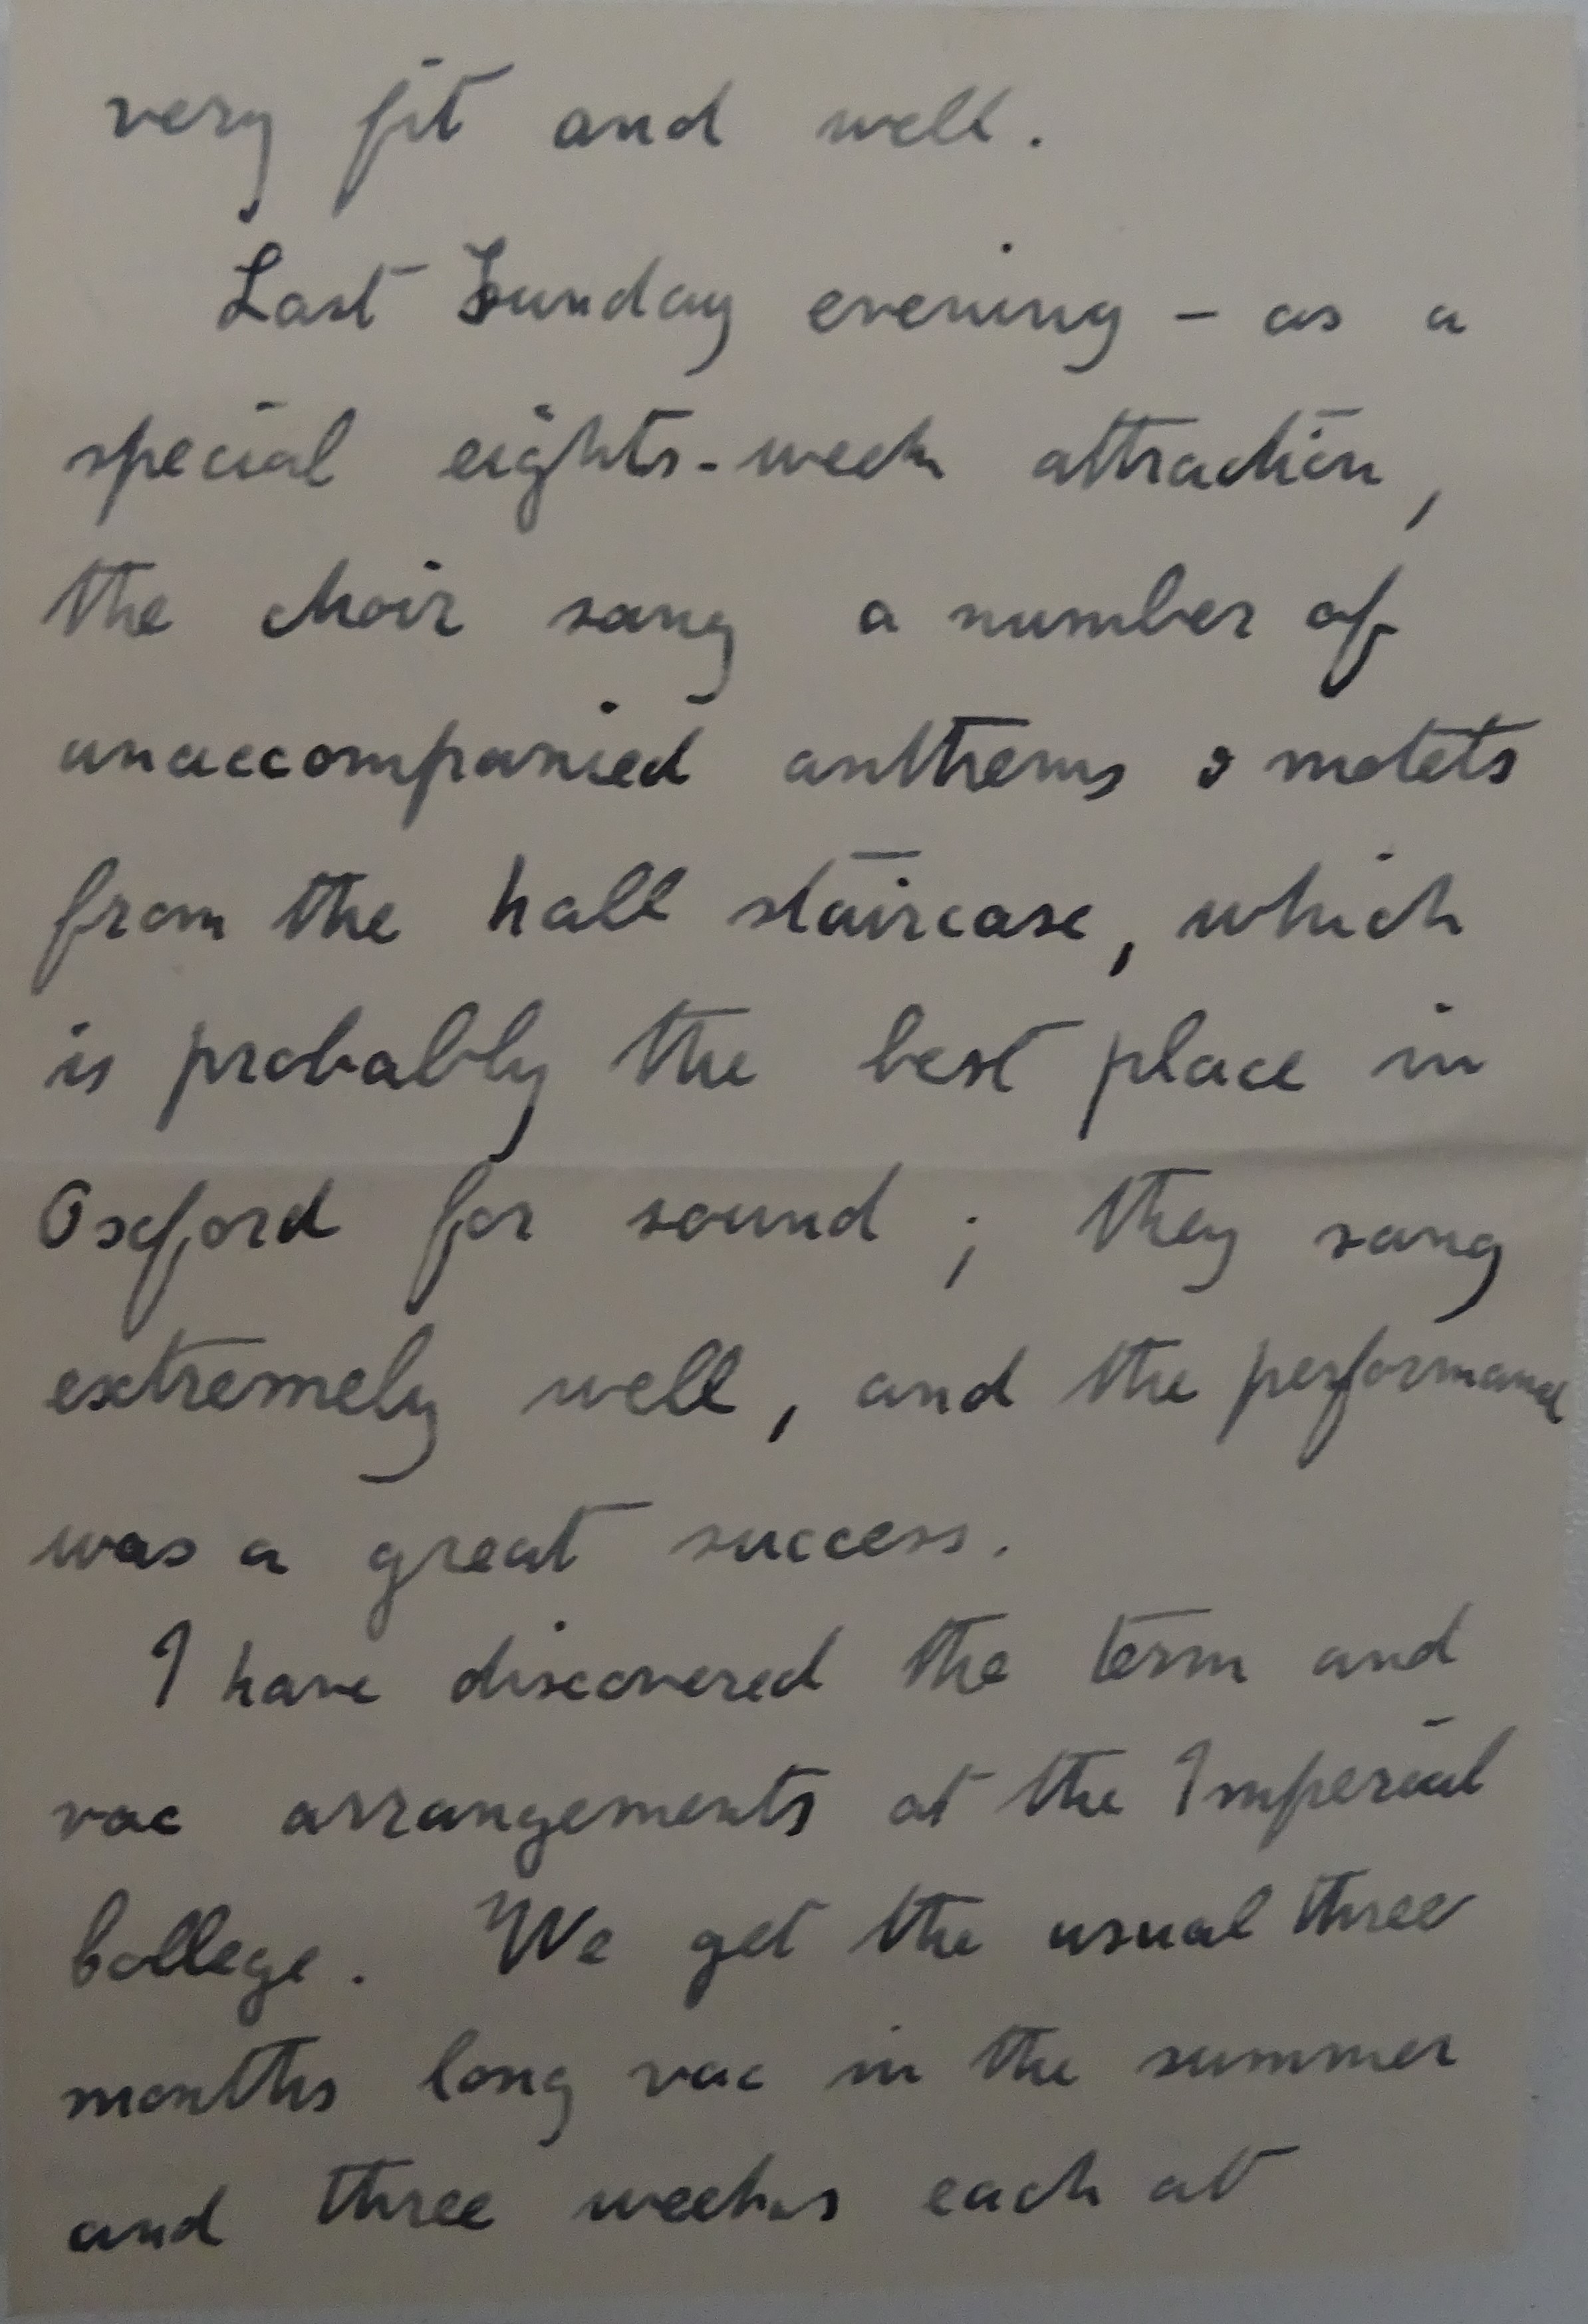 very fit and well.
Last Sunday evening - as a
special eights-week attraction,
the choir sang a number of
unaccompanied anthems & motets
from the hall staircase, which
is probably the best place in
Oxford for sound; they sang
extremely well, and the performance
was a great success.
I have discovered the term and
vac arrangements at the Imperial
College. We get the usual three
months long vac in the summer
and three weeks each at